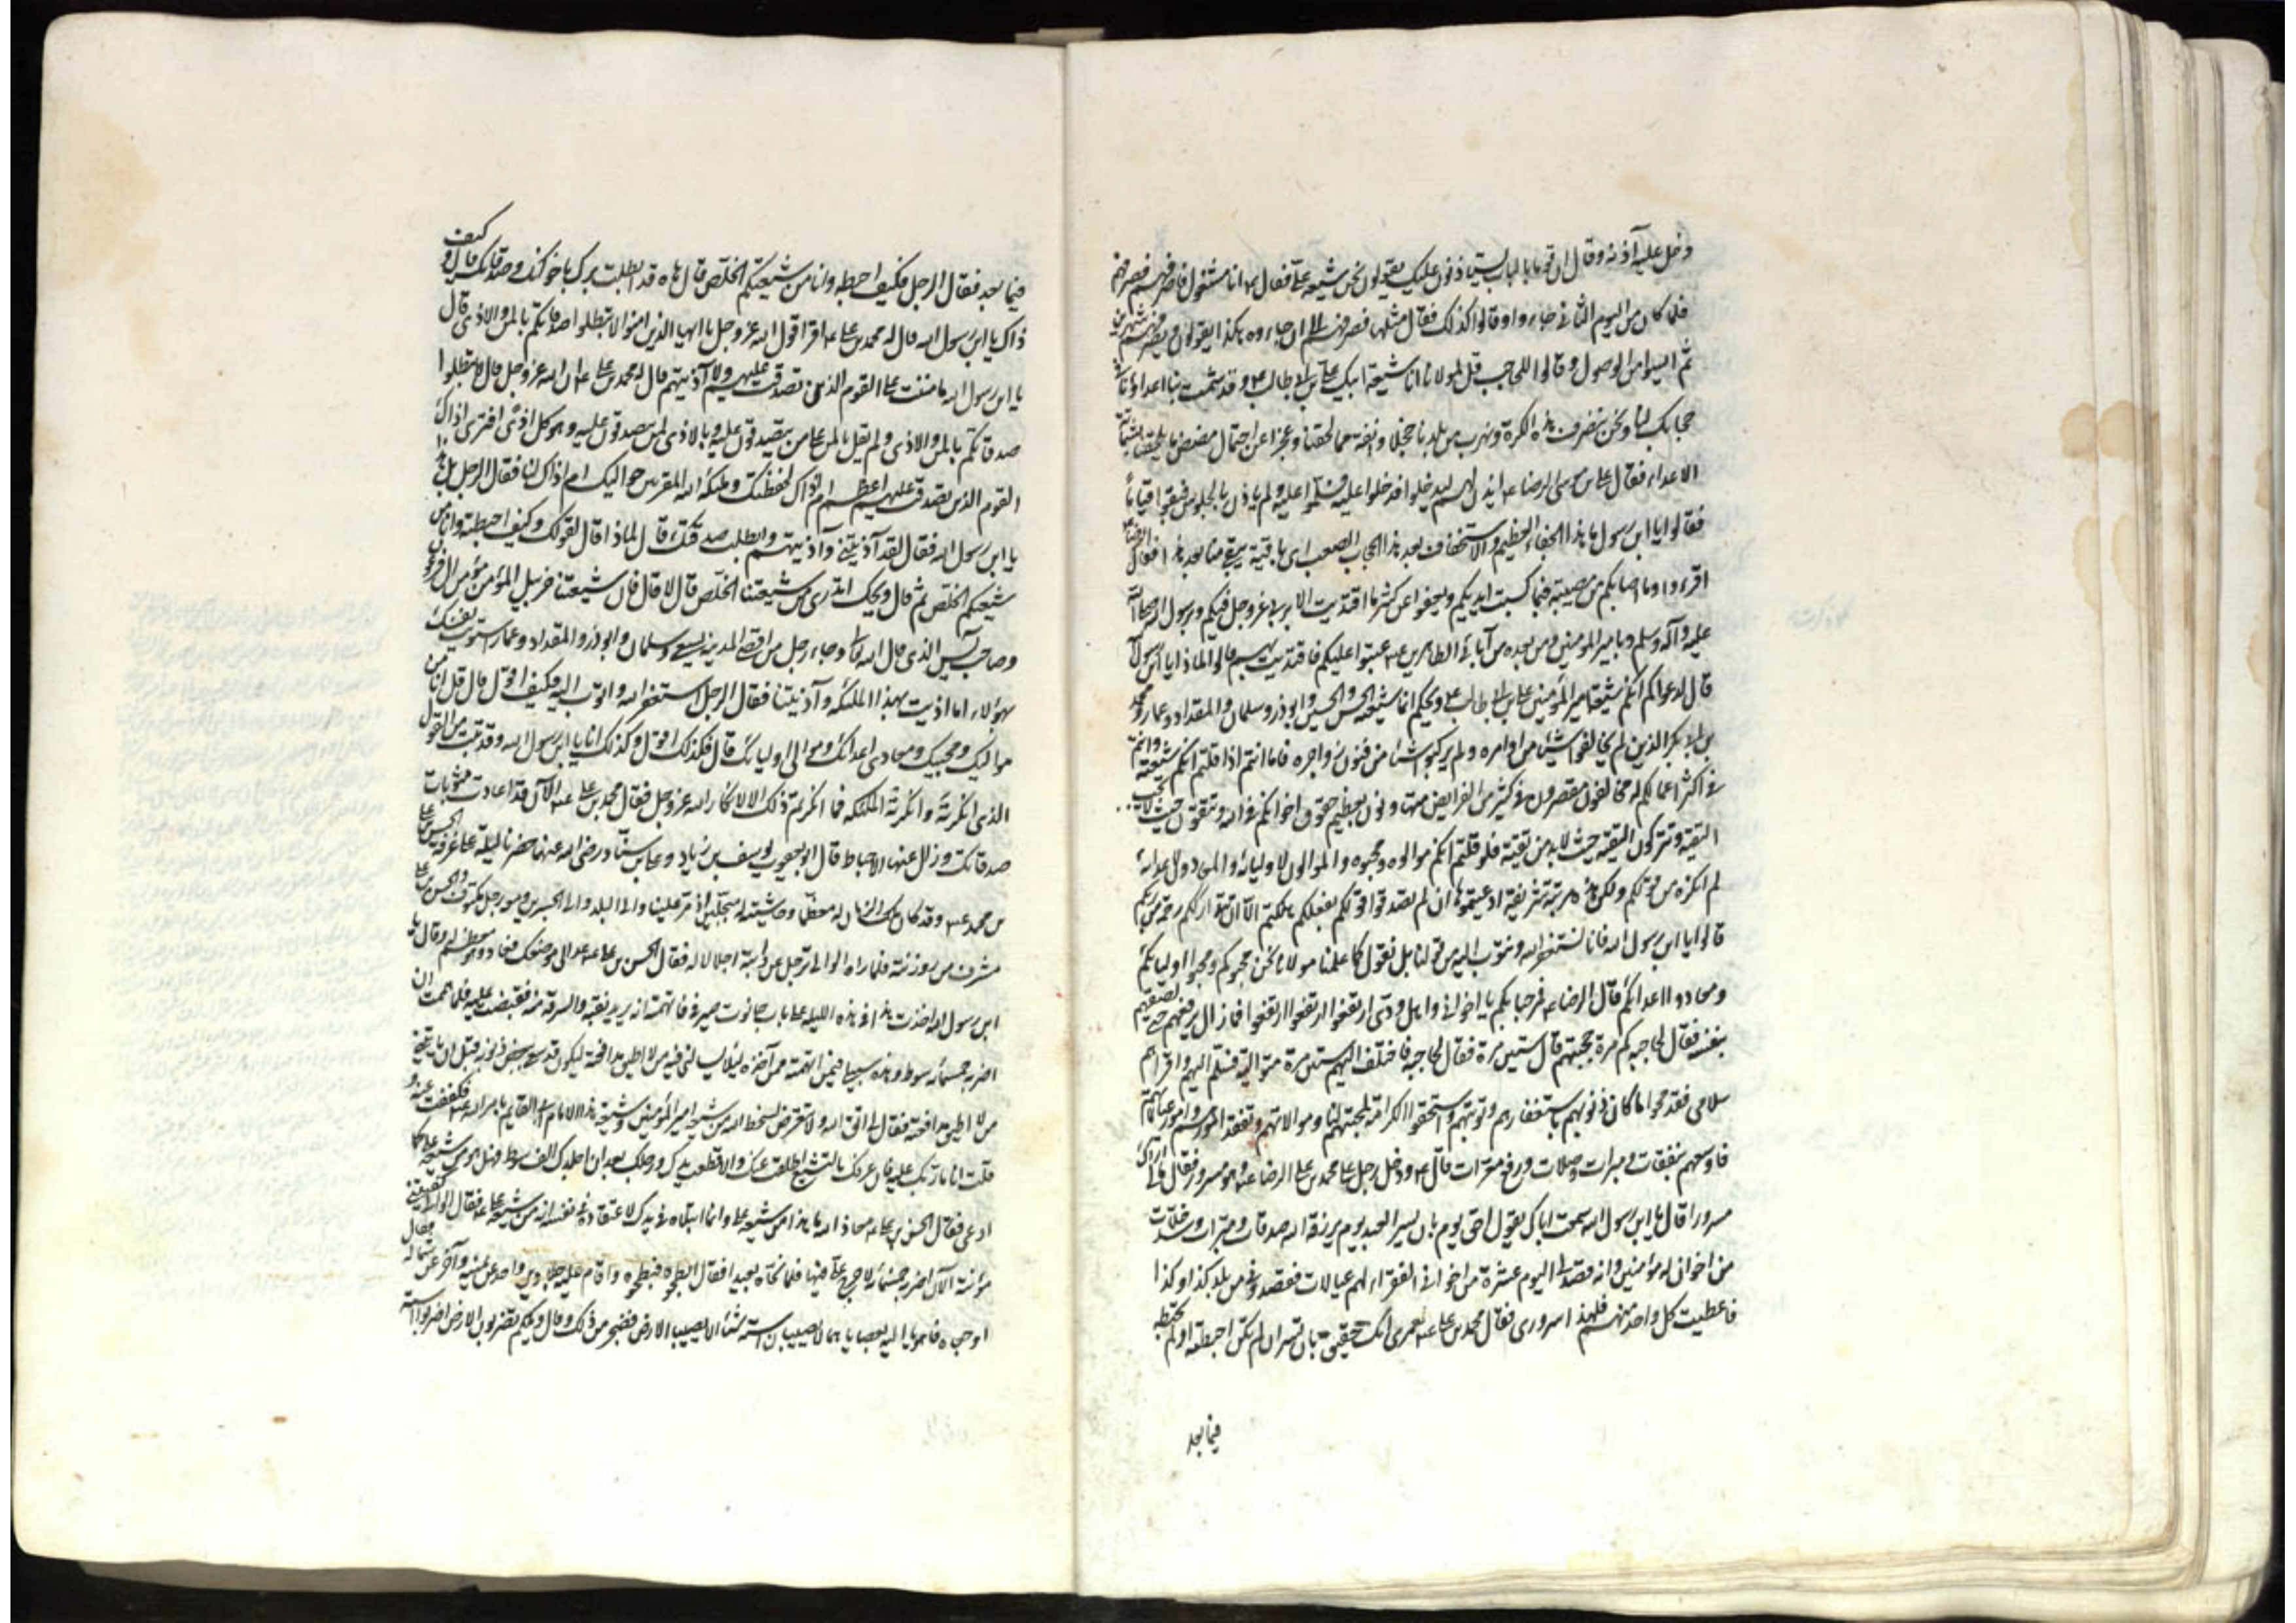 دخل عليه آذنه وقال ان قوما بالباب يستاذنون عليك يقولون نحن شيعة علي فقال ع انا مشغول فاصرفهم فصرفهم
فلما كان من اليوم الثاني جاءوا وقالوا كذلك فقال مثلها فصرفهم الى ان جاءوه هكذا يقولون ويصرفهم شهرين
ثم ايسوا من الوصول وقالوا للحاجب قل لمولانا انا شيعة ابيك علي بن ابي طالب ع وقد شمت بنا اعداؤنا في
حجابك لنا ونحن ننصرف هذه الكرة ونهرب من بلدنا خجلا وانفة مما لحقنا وعجزا عن احتمال مضض ما يلحقنا بشماتة
الاعداء فقال علي بن موسى الرضا ع ايذن لهم ليدخلوا فدخلوا عليه فسلموا عليه ولم ياذن بالجلوس فبقوا قياما
فقالوا يا ابن رسول ما هذا الجفاء العظيم والاستخفاف بعد هذا الحجاب الصعب اي باقية تبقى منا بعد هذا فقال الرضا ع
اقرءوا وما اصابكم من مصيبة فبما كسبت ايديكم ويعفوا عن كثير ما اقتديت الا بربي عز وجل فيكم وبرسول الله صلى الله
عليه وآله وسلم وبامير المؤمنين ومن بعده من آبائي الطاهرين ع عتبوا عليكم فاقتديت بهم قالوا لماذا يا ابن رسول الله
قال لدعواكم انكم شيعة امير المؤمنين علي بن ابي طالب ع ويحكم انما شيعته الحسن والحسين وابوذر وسلمان والمقداد وعمار ومحمد
بن ابي بكر الذين لم يخالفوا شيئا من اوامره ولم يركبوا شيئا من فنون زواجره فاما انتم اذا قلتم انكم شيعته وانتم
في اكثر اعمالكم له مخالفون مقصرون في كثير من الفرايض متهاونون بعظيم حقوق اخوانكم في الله وتتقون حيث لا تجب
التقية وتتركون التقية حيث لا بد من تقية فلو قلتم انكم موالوه ومحبوه والموالون لاوليائه والمعادون لاعدائه
لم انكره من قولكم ولكن هذه مرتبة شريفة ادعيتموها ان لم تصدقوا قولكم بفعلكم هلكتم الا ان تتدارككم رحمة من ربكم
قالوا يا ابن رسول الله فانا نستغفر الله ونتوب اليه من قولنا بل نقول كما علمنا مولانا نحن محبوكم ومحبوا اوليائكم
ومعادوا اعدائكم قال الرضا ع فمرحبا بكم يا اخواني واهل ودي ارتفعوا ارتفعوا ارتفعوا فما زال يرفعهم حتى الصقهم
بنفسه فقال لحاجبه كم مرة حجبتهم قال ستين مرة فقال لحاجبه فاختلف اليهم ستين مرة متوالية فسلم اليهم واقراهم
سلامي فقد محوا ما كان من ذنوبهم باستغفارهم وتوبتهم واستحقوا الكرامة لمحبتهم لنا وموالاتهم وتفقد امورهم وامور عيالاتهم
فاوسعهم بنفقات ومبرات وصلات ورفع معرات قال ع ودخل رجل على محمد بن علي الرضا ع وهو مسرور فقال مالي اراك
مسرورا قال يا ابن رسول الله سمعت اباك يقول احق يوم بان يسر العبد يوم يرزقه الله صدقات ومبرات وسد خلات
من اخوان له مؤمنين وانه قصدني اليوم عشرة من اخواني الفقراء لهم عيالات فقصدوني من بلد كذا وكذا
فاعطيت كل واحد منهم فلهذا سروري فقال محمد بن علي ع لعمري انك حقيق بان تسر ان لم تكن احبطته او لم تحبطه
فيما بعد
فيما بعد فقال الرجل فكيف احبطه وانا من شيعتكم الخلص قال هاه قد ابطلت برك باخوانك وصدقاتك قال وكيف
ذاك يا ابن رسول الله قال له محمد بن علي ع اقرا قول الله عز وجل يا ايها الذين امنوا لا تبطلوا صدقاتكم بالمن والاذى قال
يا ابن رسول الله ما مننت على القوم الذين تصدقت عليهم ولا آذيتهم قال له محمد بن علي ع ان الله عز وجل قال لا تبطلوا
صدقاتكم بالمن والاذى ولم يقل بالمن على من يتصدقون عليه وبالاذى لمن يتصدقون عليه وهو كل اذى افترى اذاك
القوم الذين تصدقت عليهم اعظم ام اذاك لحفظتك وملئكة الله المقربين حواليك ام اذاك لنا فقال الرجل بل هذا
يا ابن رسول الله فقال لقد آذيتني وآذيتهم وابطلت صدقتك قال لماذا قال لقولك وكيف احبطته وانا من
شيعتكم الخلص ثم قال ويحك اتدري من شيعتنا الخلص قال لا قال فان شيعتنا حزبيل المؤمن مؤمن ال فرعون
وصاحب يس الذي قال الله تعالى وجاء رجل من اقصى المدينة يسعى وسلمان وابوذر والمقداد وعمار سويت نفسك
بهؤلاء اما اذيت بهذا الملئكة وآذيتنا فقال الرجل استغفر الله واتوب اليه فكيف اقول قال قل انا من
مواليك ومحبيك ومعادي اعدائك وموالي اوليائك قال فكذلك اقول وكذلك انا يا ابن رسول الله وقد تبت من القول
الذي انكرته وانكرته الملئكة فما انكرتم ذلك الا لانكار الله عز وجل فقال محمد بن علي ع الآن قد عادت مثوبات
صدقاتك وزال عنها الاحباط قال ابو يعقوب يوسف بن زياد وعلي بن سيار رضي الله عنهما حضرنا ليلة على غرفة الحسن بن علي
بن محمد ع وقد كان ملك الزمان له معظما وحاشيته له مبجلين اذ مر علينا والي البلد والي الجسرين ومعه رجل مكتوف والحسن بن علي
مشرف من روزنته فلما راه الوالي ترجل عن دابته اجلالا له فقال الحسن بن علي ع عد الى موضعك فعاد وهو معظم له وقال يا
ابن رسول الله اخذت هذا في هذه الليلة على باب حانوت صيرفي فاتهمته بانه يريد نقبه والسرقة منه فقبضت عليه فلما هممت ان
اضربه خمسمائة سوط وهذه سبيلي فيمن اتهمته ممن آخذه لئلا يسالني فيه من لا اطيق مدافعته ليكون قد شقي ببعض ذنوبه قبل ان ياتيني
من لا اطيق مدافعته فقال لي اتق الله ولا تتعرض لسخط الله فاني من شيعة امير المؤمنين وشيعة هذا الامام القايم بامر الله ع فكففت عنه و
قلت انا مار بك عليه فان عرفك بالتشيع اطلقت عنك والا قطعت يدك ورجلك بعد ان اجلدك الف سوط فهل هو من شيعة علي كما
ادعى فقال الحسن بن علي ع معاذ الله ما هذا من شيعة علي وانما ابتلاه في يدك لاعتقاده في نفسه انه من شيعة علي ع فقال الوالي كفيتني
مؤنته الآن اضربه خمسمائة لا حرج علي فيها فلما نحاه بعيدا فقال ابطحوه فبطحوه واقام عليه جلادين واحد عن يمينه وآخر عن شماله فقال
اوجعاه فاهويا اليه بعصاياهما لا يصيبان استه شيئا الا يصيب الارض فضجر من ذلك وقال ويلكم تضربون الارض اضربوا استه